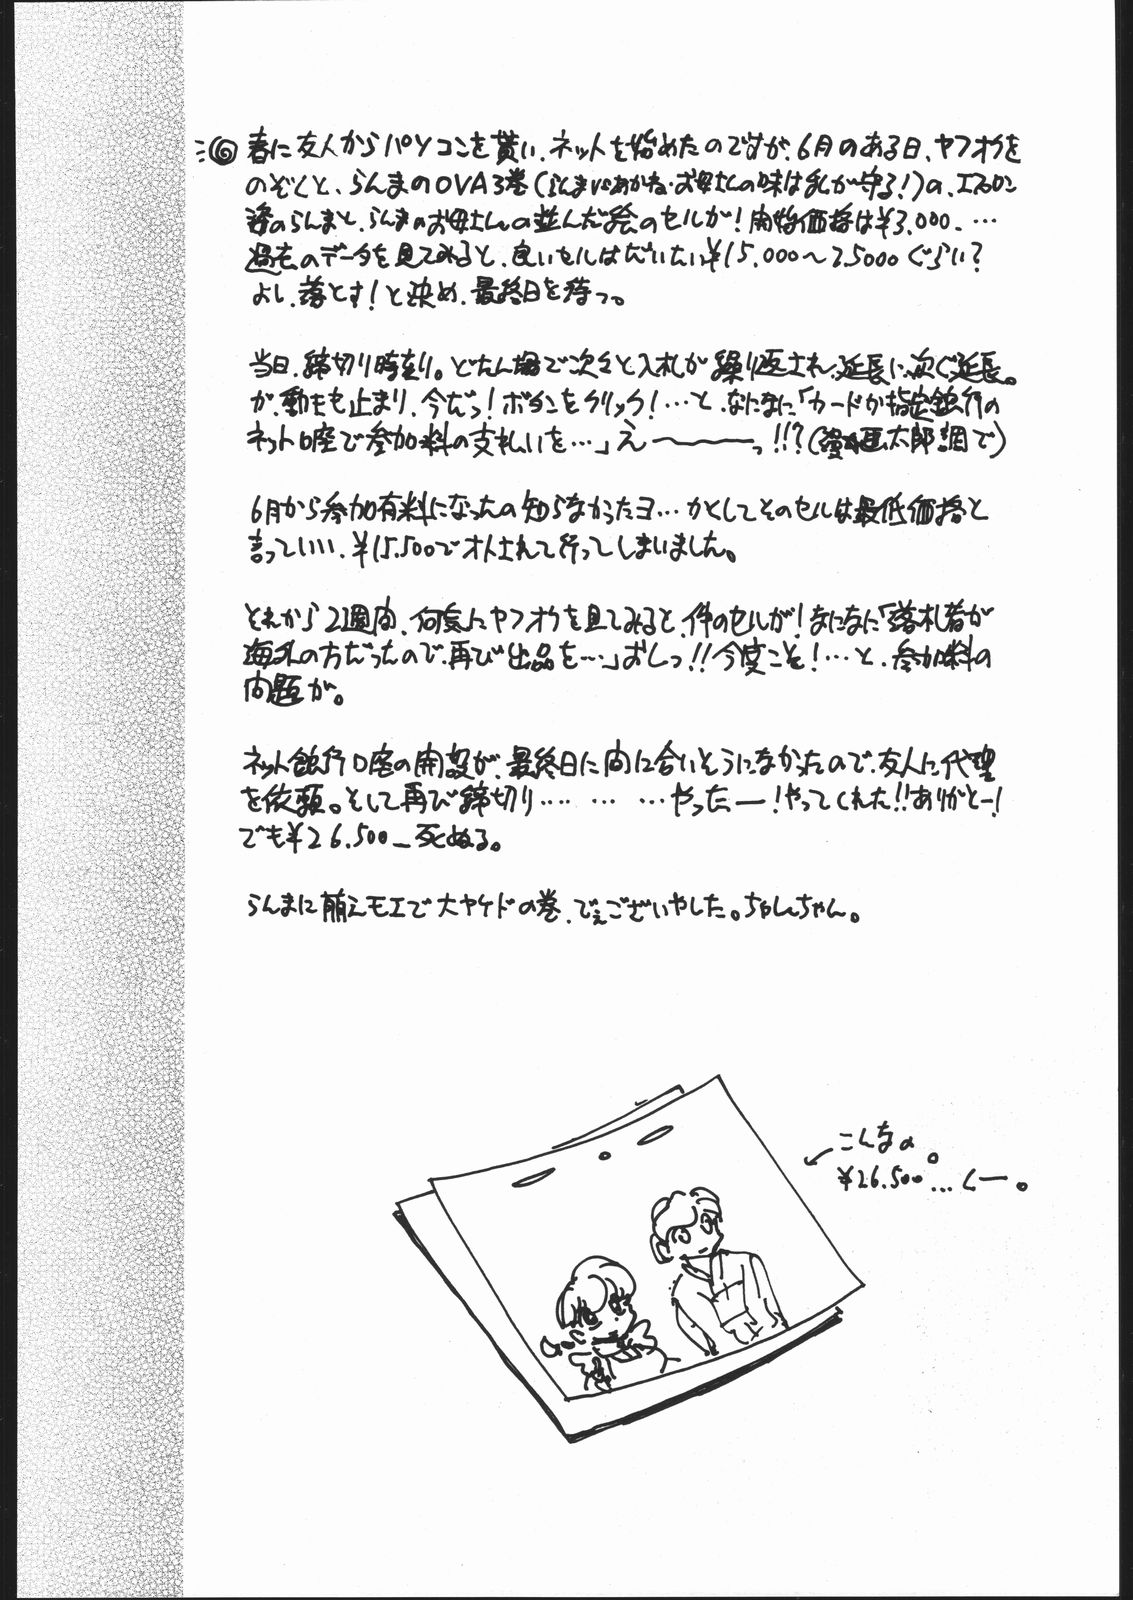 春に友人からパソコンを貰い、ネットを始めたのですが、6月のある日、ヤフオクを
のぞくと、らんまのOVA3巻(らんまVSあかね・お母さんの味は私が守る!)の、エプロン
姿のらんまと、らんまのお母さんの並んだ絵のセルが!開始価格は¥3.000、…
過去のデータを見てみると、良いセルはだいたい¥15.000〜25000ぐらい?
よし、落とす!と決め、最終日を待つ。
当日、締切り時刻。どたん場で次々と入札が繰り返され、延長に次ぐ延長。
が、動きも止まり、今だっ!ボタンをクリック!…と、なになに「カードか指定銀行の
ネット口座で参加料の支払いを…」え〜〜〜っ!!?(漫☆画太郎調で)
6月から参加有料になったの知らなかったヨ…かくしてそのセルは最低価格と
言っていい、¥15.500でオトされて行ってしまいました。
それから2週間、何気にヤフオクを見てみると、件のセルが!なになに「落札者が
海外の方だったので、再び出品を…」おしっ!!今度こそ!…と、参加料の
問題が。
ネット銀行口座の開設が、最終日に間に合いそうになかったので、友人に代理
を依頼。そして再び締切り‥‥ … …やったー!やってくれた!!ありがとー!
でも¥26.500_死ぬる。
らんまに萌えモエで大ヤケドの巻、でぇございやした。ちゃんちゃん。
こんなの。
¥26.500…くー。